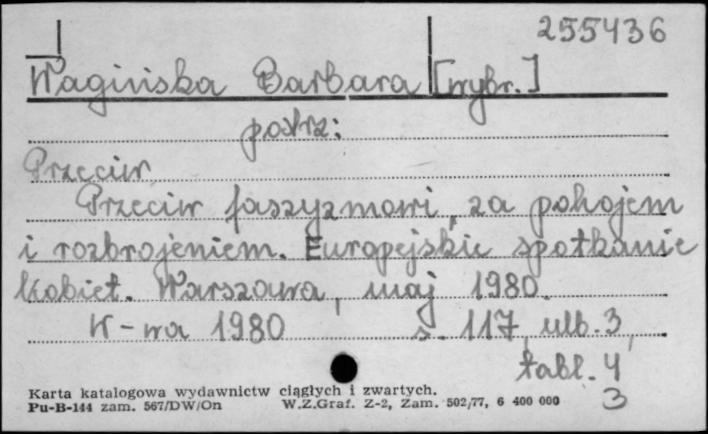 255436
Wagińska Barbara [wybr.]
patrz:
Przeciw
Przeciw faszyzmowi, za pokojem
i rozbrojeniem. Europejskie spotkanie
kobiet. Warszawa, maj 1980.
W-wa 1980 s. 117, ulb. 3,
tabl. 4
3
Karta katalogowa wydawnictw ciągłych i zwartych.
Pu-B-144 zam. 567/DW/On W.Z.Graf. Z-2, Zam. 502/77, 6 400 000